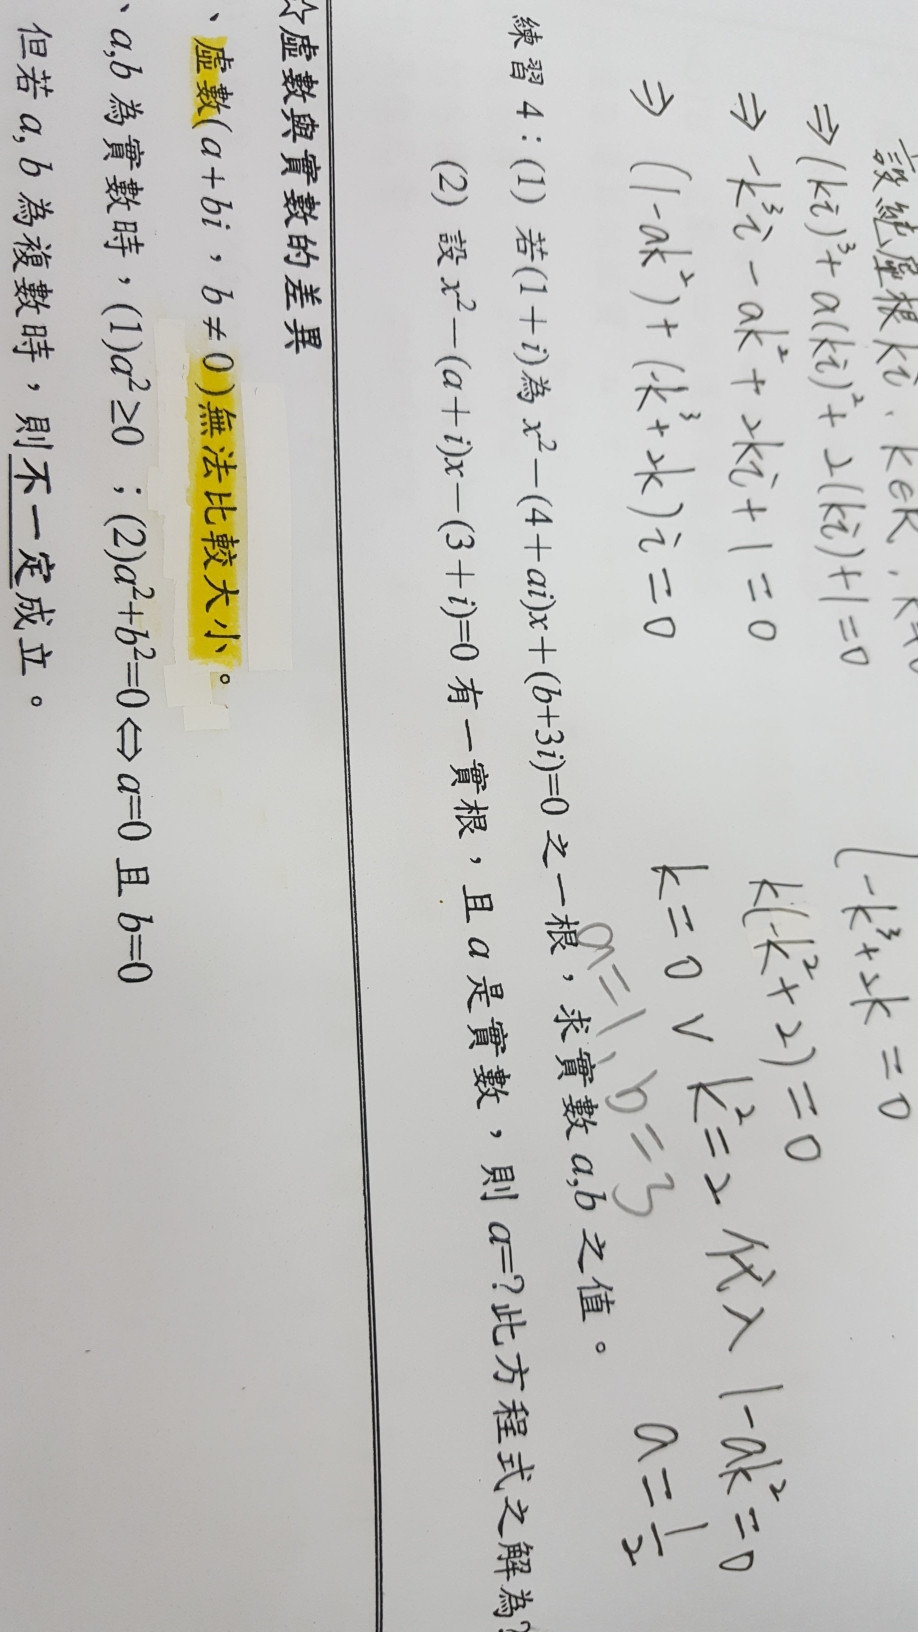 設純虛根 ki、k∈R、k≠0
⇒ (ki)³+a(ki)²+2(ki)+1=0
⇒ -k³i-ak²+2ki+1=0
⇒ (1-ak²)+(-k³+2k)i=0
-k³+2k=0
k(-k²+2)=0
k=0 ∨ k²=2 代入 1-ak²=0
a=1/2
練習 4：(1) 若(1+i)為 x²-(4+ai)x+(b+3i)=0 之一根，求實數 a,b 之值。
a=1、b=3
(2) 設 x²-(a+i)x-(3+i)=0 有一實根，且 a 是實數，則 a=?此方程式之解為?
☆虛數與實數的差異
、虛數(a+bi，b≠0)無法比較大小。
、a,b 為實數時，(1)a²≥0；(2)a²+b²=0⇔a=0 且 b=0
但若 a, b 為複數時，則不一定成立。